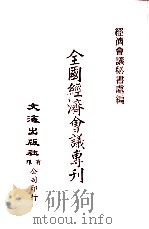 經濟會議秘書處編
全國經濟會議專刊
文海出版社有限公司印行